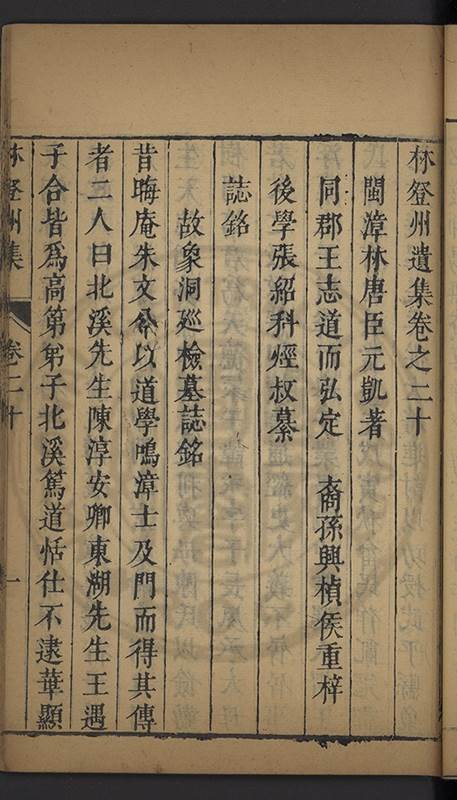 林登州遺集卷之二十
閩漳林唐臣元凱著
同郡王志道而弘定　裔孫興楨侯重梓
後學張紹科烴叔纂
誌銘
故象洞廵檢墓誌銘
昔晦庵朱文公以道學鳴漳士及門而得其傳
者三人曰北溪先生陳淳安卿東湖先生王遇
子合皆爲高第弟子北溪篤道恬仕不逮華顯
林登州集　卷二十　一